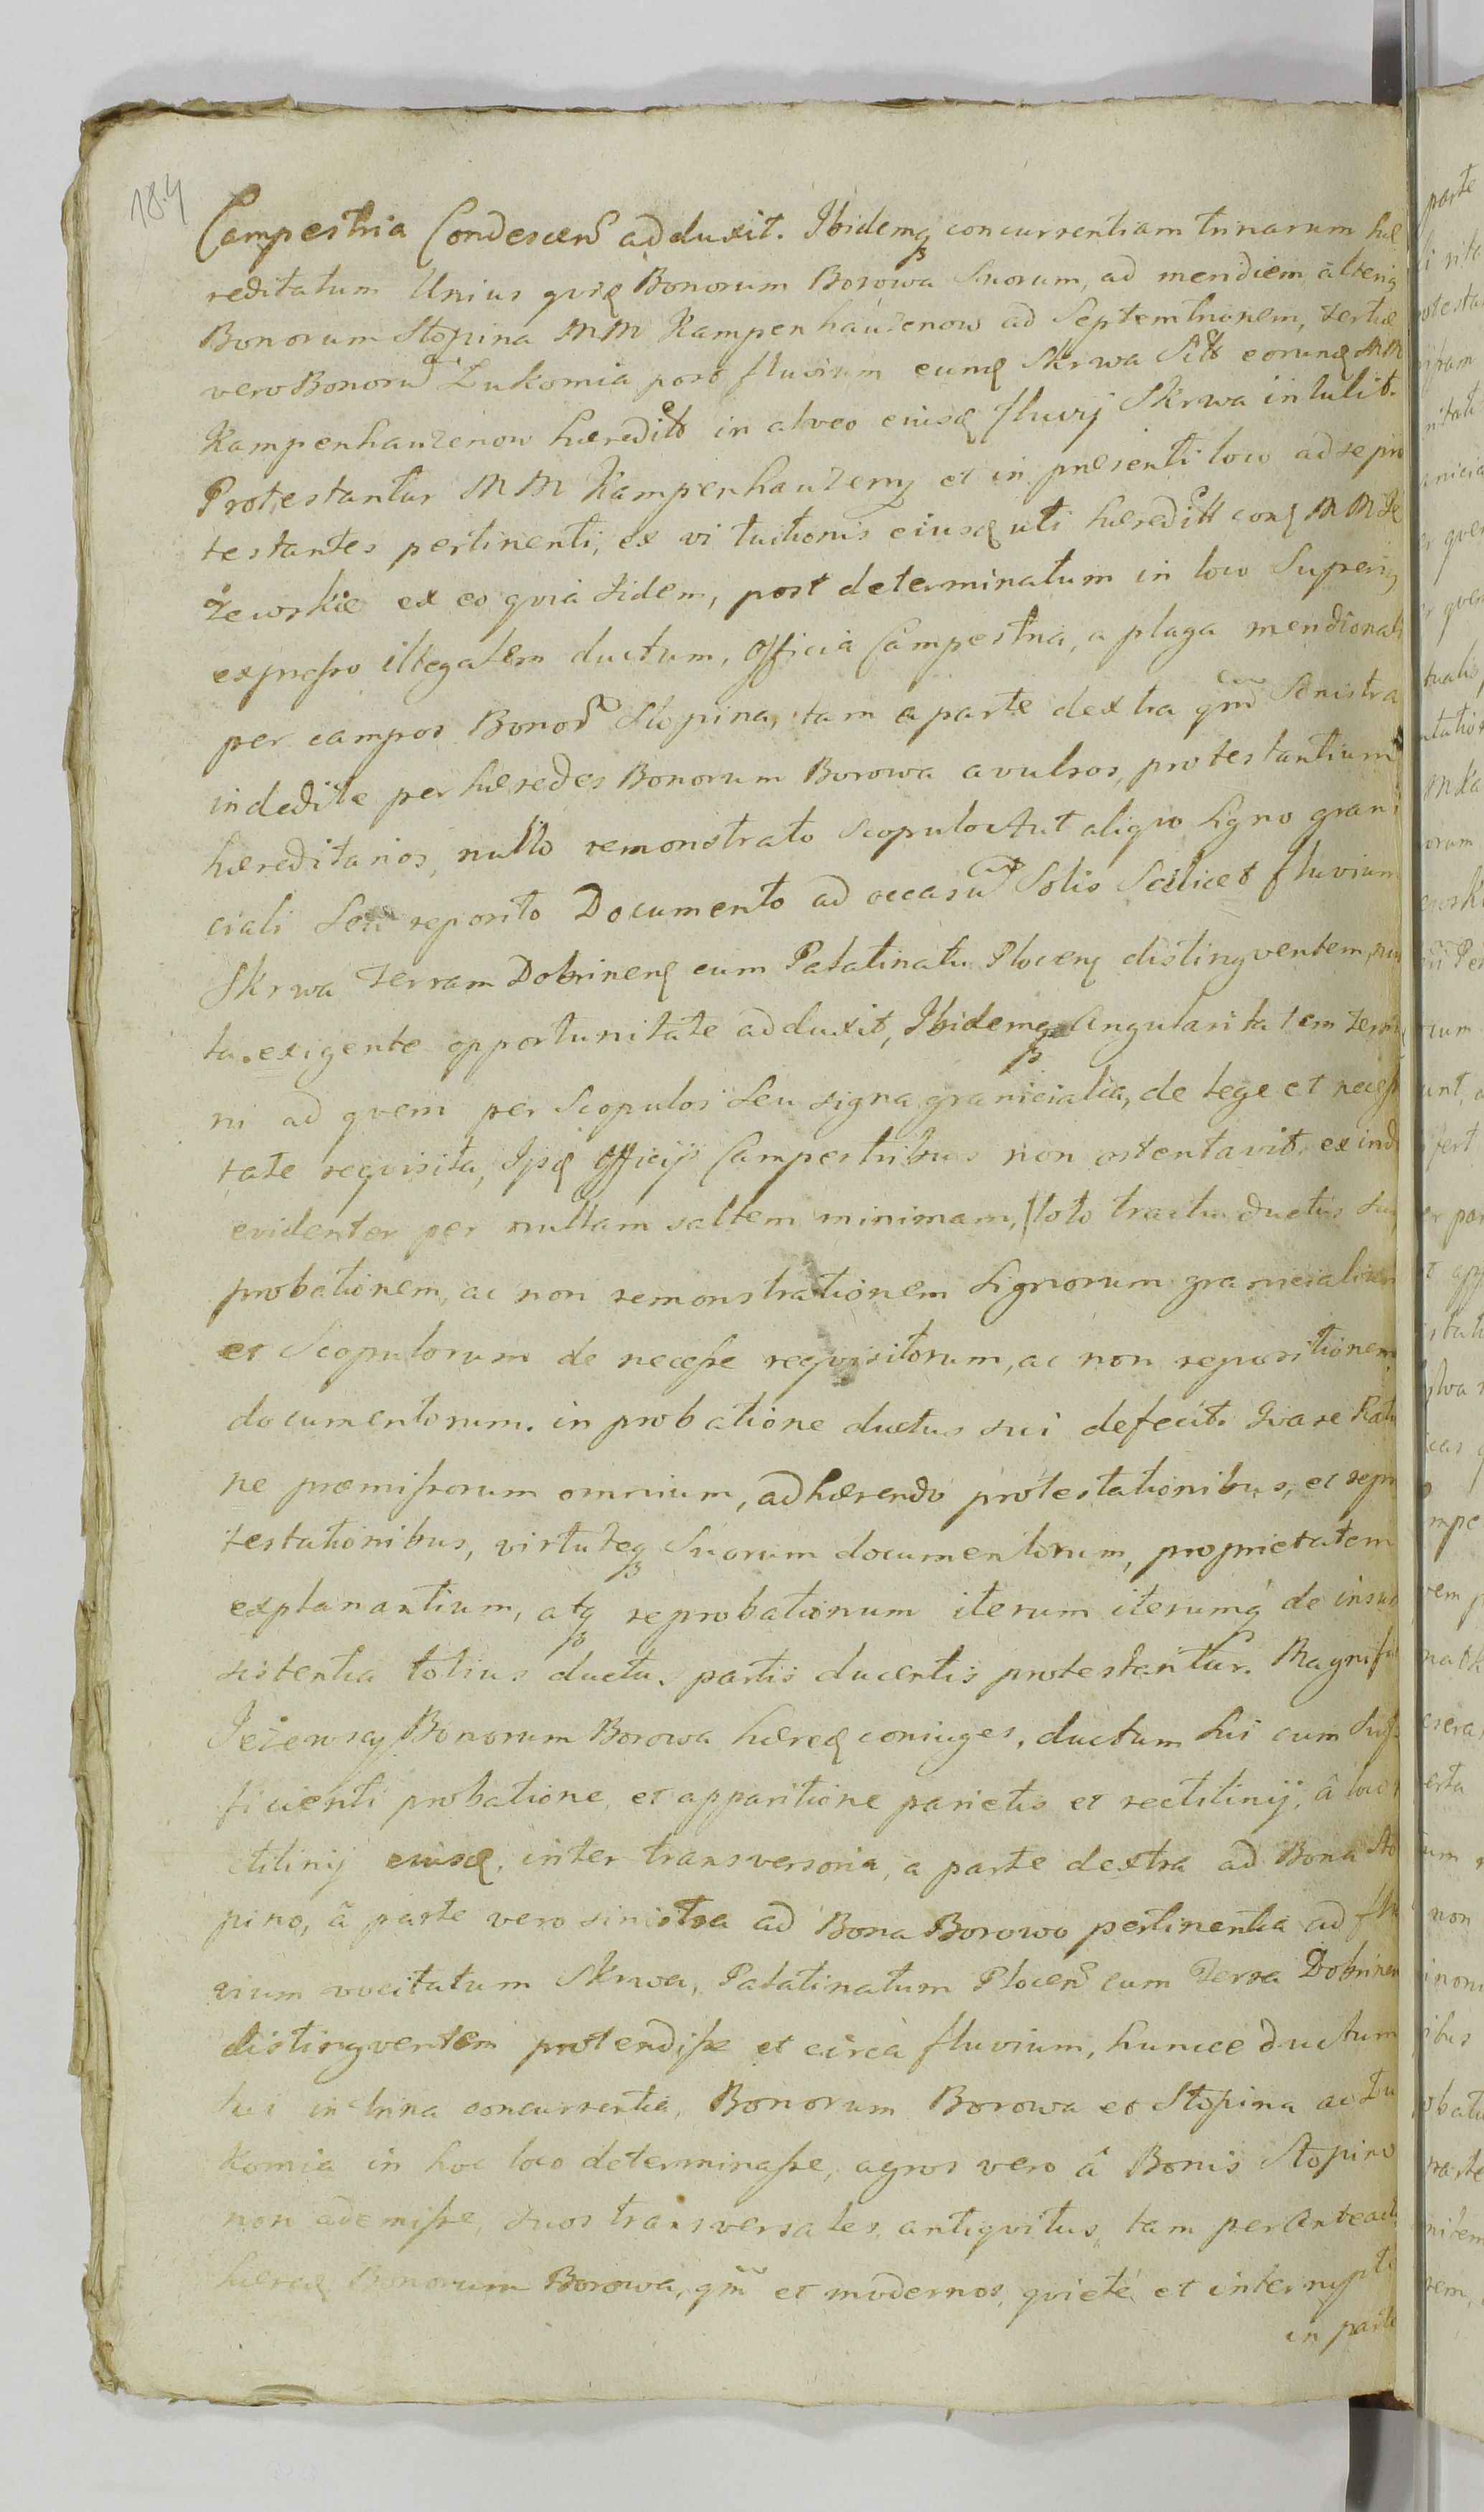 184
Campestria Condescen adduxit. Ibidemq concurrentiam trinarum hæ
reditatum Unius qvidę Bonorum Borowa Suorum, ad meridiem, alteriq
Bonorum Stopina MM Kampenhauzenow ad Septemtrionem, tertiæ
vero Bonorũ Lukomia post fluvium eumę Skrwa Sitt eorundę MM
Kampenhauzenow hæreditt in alveo eiusę fluvij Skrwa intulit.
Protestantur MM Kampenhauzeny et in præsenti loco ad se pro
testantes pertinenti, ex vi tuitionis eiusę uti hæreditt conę MM Je
żewskie ex eo qvia iidem, post determinatum in loco Superiq
expresso illegalem ductum, Officia Campestria, a plaga meridionali
per campos Bonor Stopina, tam a parte dextra qm Senistra
indebite per hæredes Bonorum Borowa avulsos, protestantium
hæreditarios, nullo remonstrato Scopulo Aut aliqvo Signo grani
ciali Seu reposito Documento ad occasũ Solis Scilicet fluvium
Skrwa Terram Dobrinenę cum Palatinatu Plocenę distingventem,
ta exigente opportunitate adduxit, Ibidemq Angularitatem Termi
ni ad qvem per Scopulos Seu signa granicialia, de lege et necess
tate reqvisita, Ipsę Officijs Campestribus non ostentavit, exinde
evidenter per nullam saltem minimam, toto tractu ductus sui
probationem, ac non remonstrationem Signorum granicialium
et Scopulorum de necesse reqvisitorum, ac non repositionem
documentorum. in probatione ductus sui defecit. Qvare Ratio
ne præmissorum omnium, adhærendo protestationibus, et repro
testationibus, virtuteq Suorum documentorum, proprietatem
explanantium, atq reprobationum iterum iterumq de insub
sistentia totius ductu. partis ducentis protestantur. Magnifici
Jeżewscy Bonorum Borowa hæredę coniuges, ductum Sui cum Suf
ficienti probatione, et apparitione parietis et rectilinij, â loco r
ectilinij eiusdę, inter transversoria, a parte dextra ad Bona Sto
pino, â parte vero sinistra ad Bona Borowo pertinentia ad flu
vium vocitatum Skrwa, Palatinatum Plocen cum Terra Dobrinen
distingventem protendisse et circa fluvium, huncce ductum
Sui in trina concurrentia, Bonorum Borowa et Stopina ac Lu
komia in hoc loco determinasse, agros vero â Bonis Stopino
non ademisse, suos transversales, antiqvitus, tam per Anteact
hæredę Bonorum Borowa, qm et modernos, qviete et interrupt
in parte